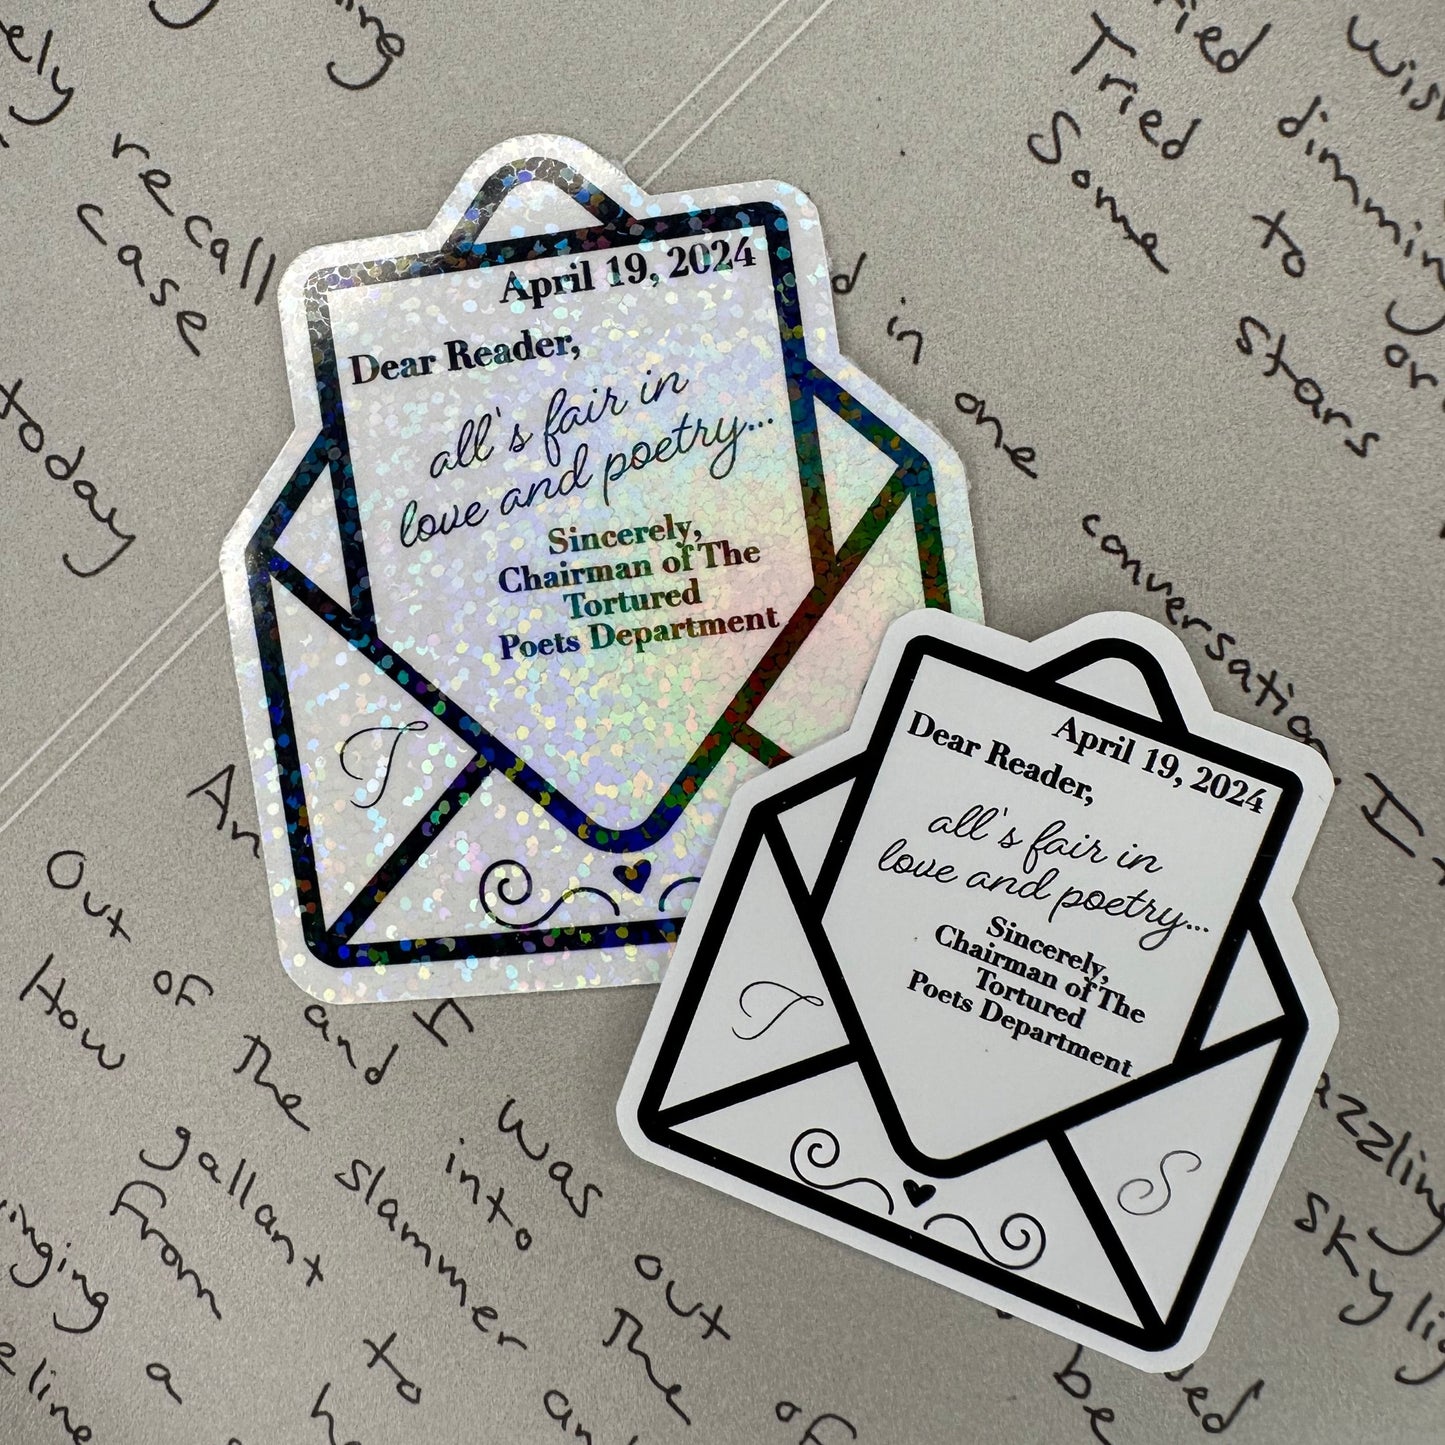 April 19, 2024
Dear Reader,
all's fair in
love and poetry...
Sincerely,
Chairman of The
Tortured
Poets Department
T
April 19, 2024
Dear Reader,
all's fair in
love and poetry...
Sincerely,
Chairman of The
Tortured
Poets Department
T
S
recall
case
today
Tried to
Some stars
dimming
or
in one conversation
I
An
and I was out of
Out of the slammer and
How gallant to be
From
into the
a
be